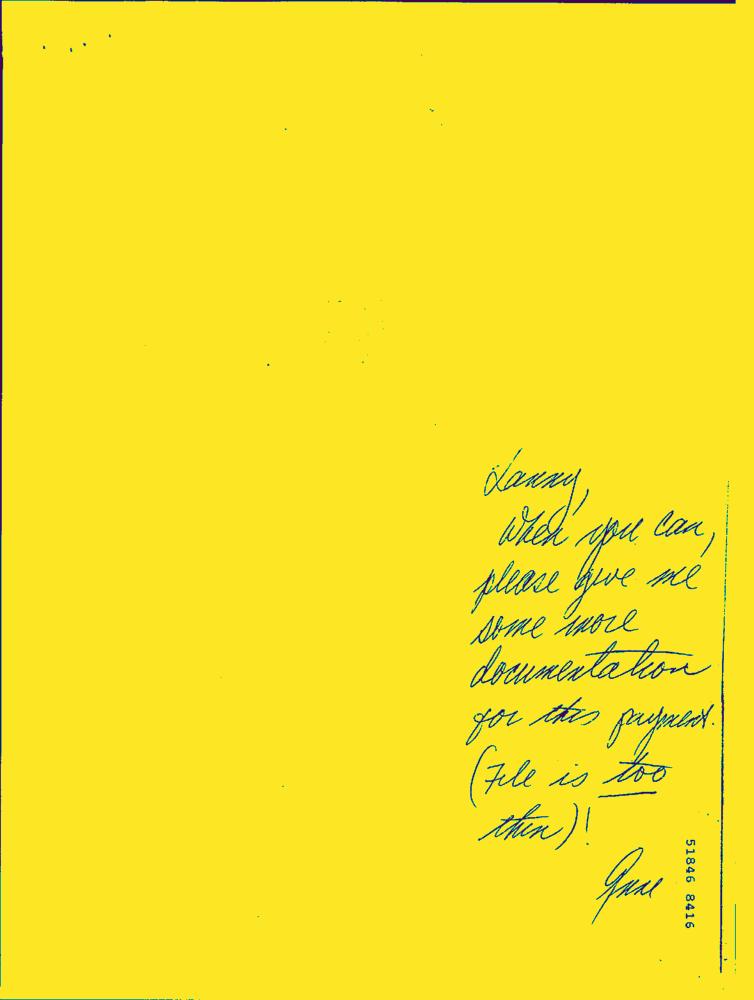 Lanny,
When you can,
please give me
some more
documentation
for this payment.
(File is too
thin)!
June
51846 8416